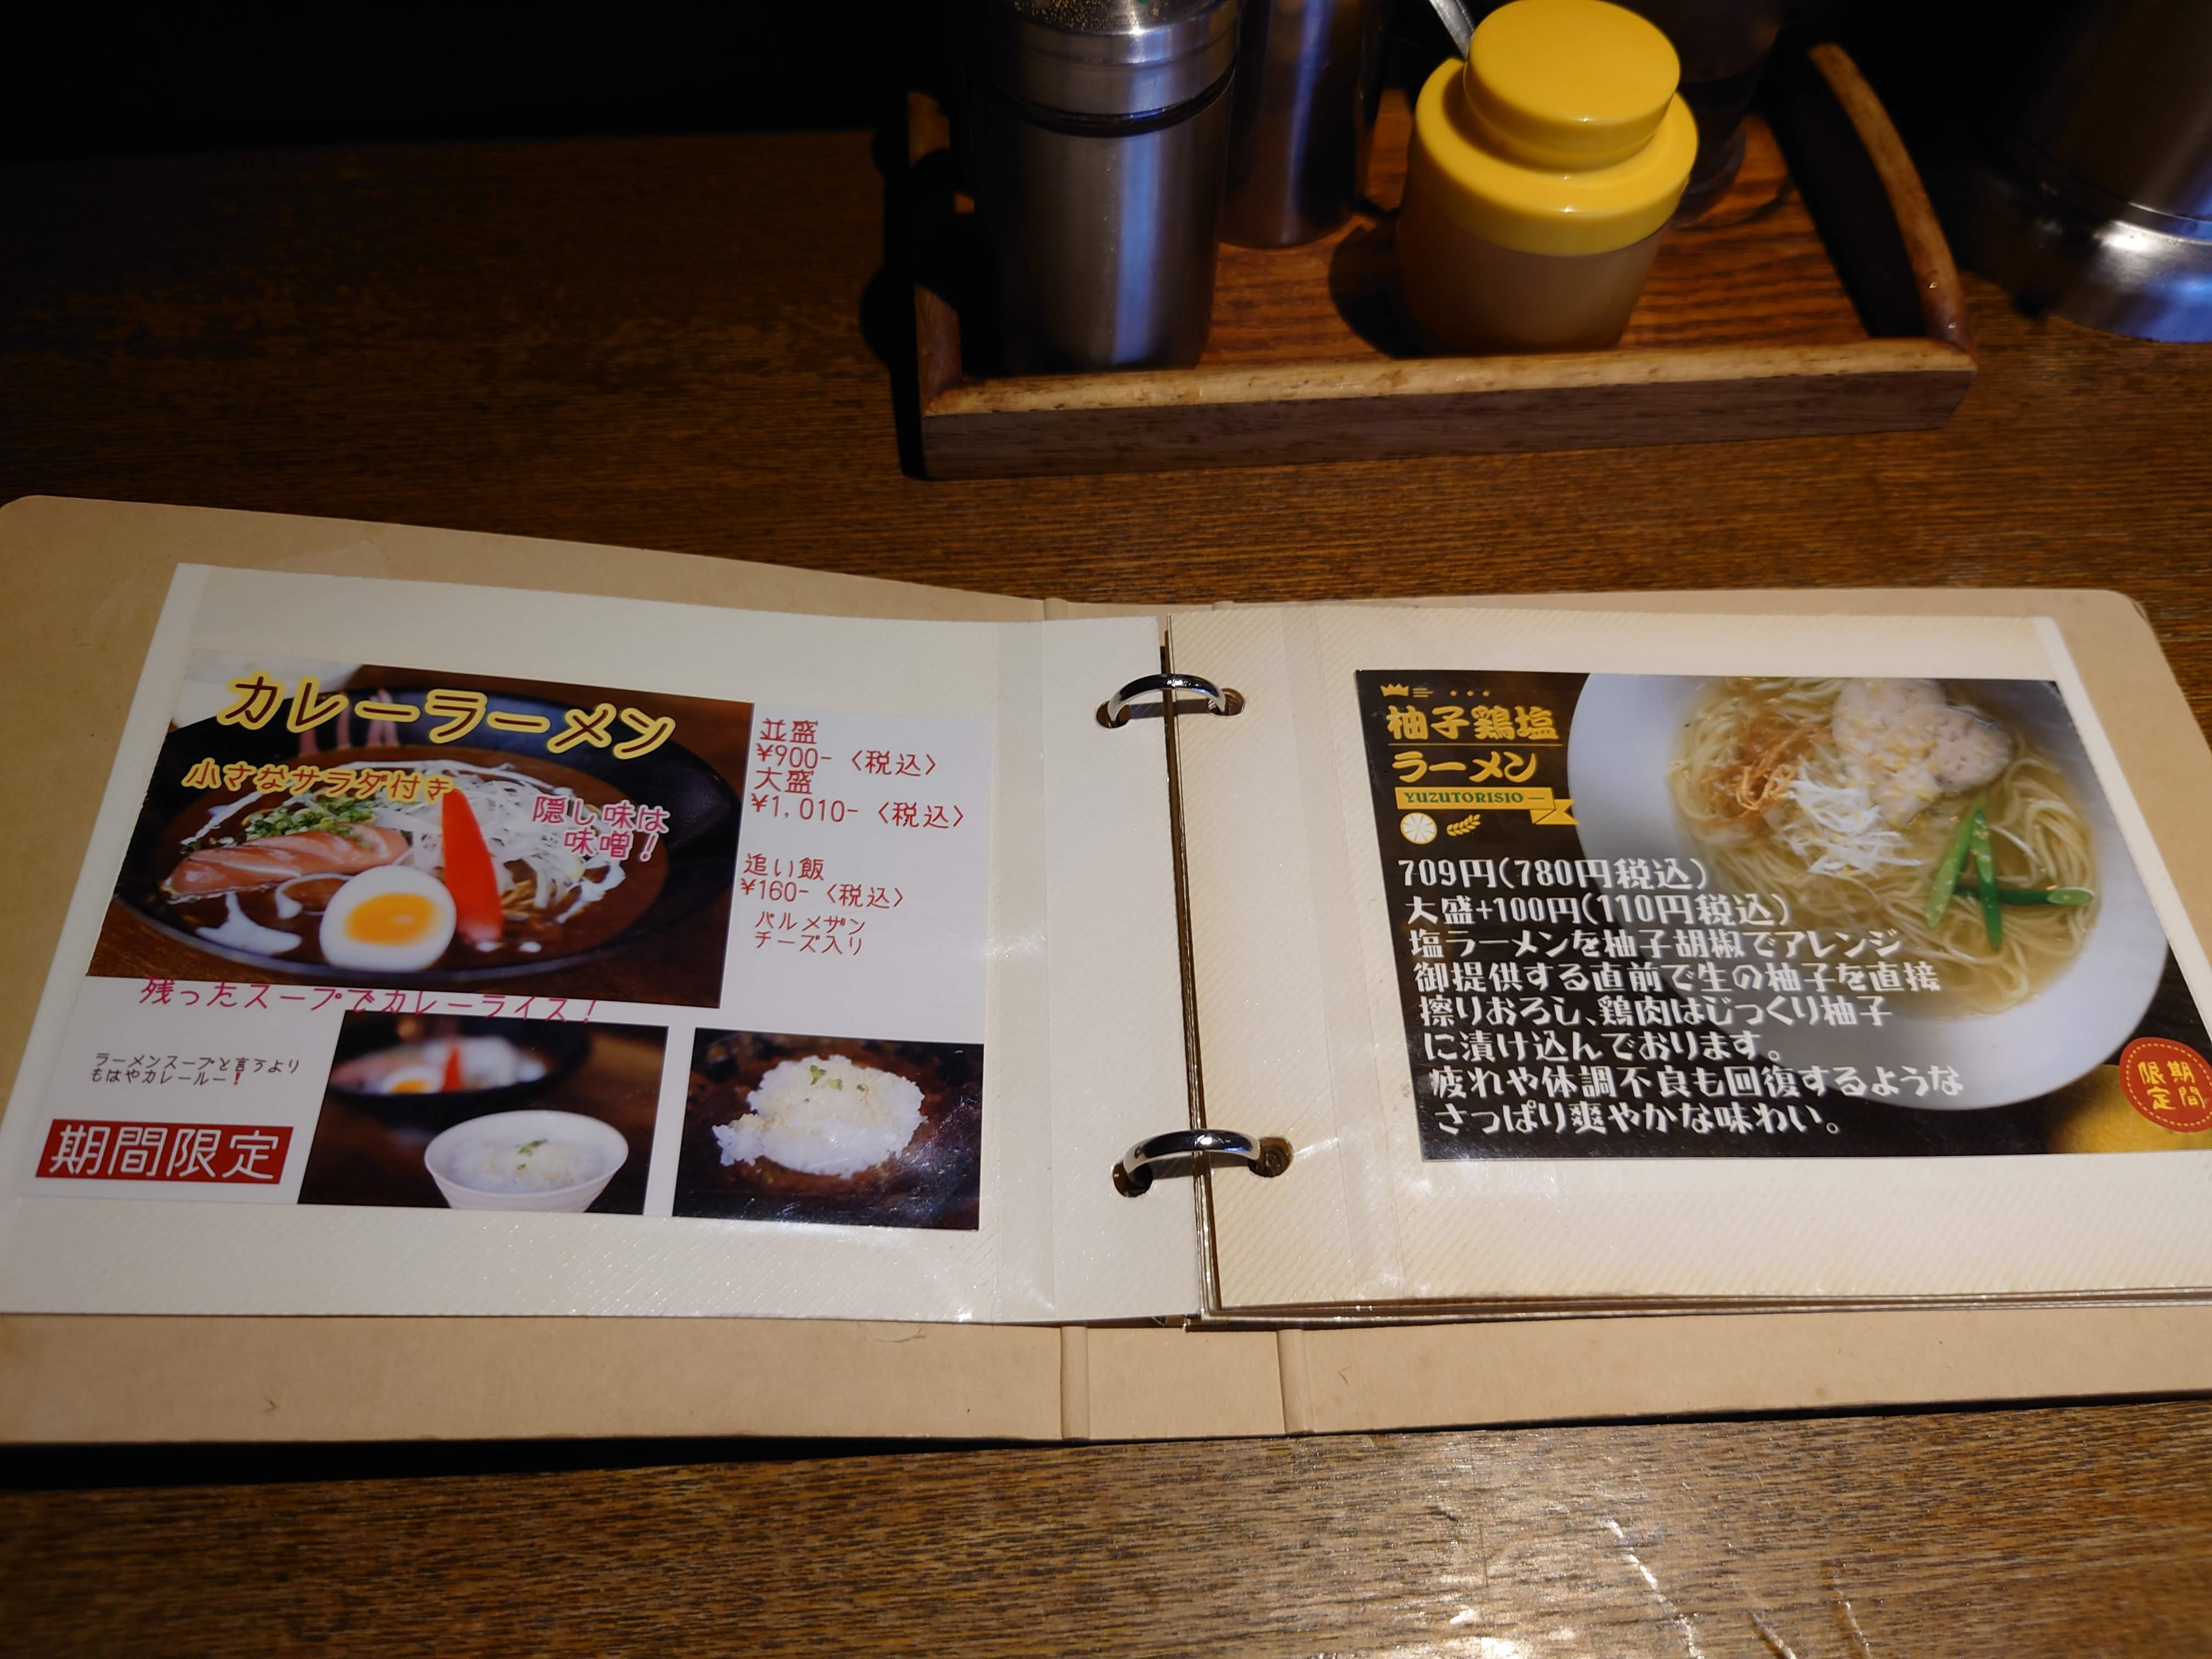 カレーラーメン
小さなサラダ付き
隠し味は
味噌！
並盛
¥900-〈税込〉
大盛
¥1,010-〈税込〉
追い飯
¥160-〈税込〉
パルメザン
チーズ入り
残ったスープでカレーライス！
ラーメンスープと言うより
もはやカレールー！
期間限定
柚子鶏塩
ラーメン
YUZUTORISIO
709円(780円税込)
大盛+100円(110円税込)
塩ラーメンを柚子胡椒でアレンジ
御提供する直前で生の柚子を直接
擦りおろし、鶏肉はじっくり柚子
に漬け込んでおります。
疲れや体調不良も回復するような
さっぱり爽やかな味わい。
期間
限定